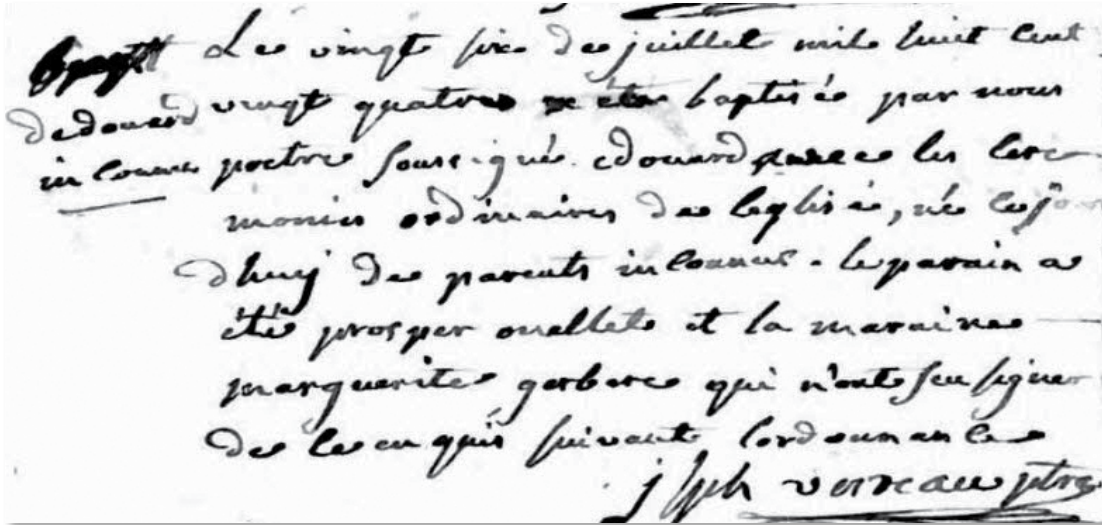 bapt Le vingt six de juillet mil huit cent
dedouard vingt quatre a été baptisée par nous
inconnu pretre soussigné edouard avec les cere
monies ordinaires de leglise, né ce jour
dhuy de parents inconnus. le parain a
été prosper ouallet et la maraine
marguerite gerbere qui n'ont seu signer
de ce enquis suivant lordonnance
jsph verreau ptre